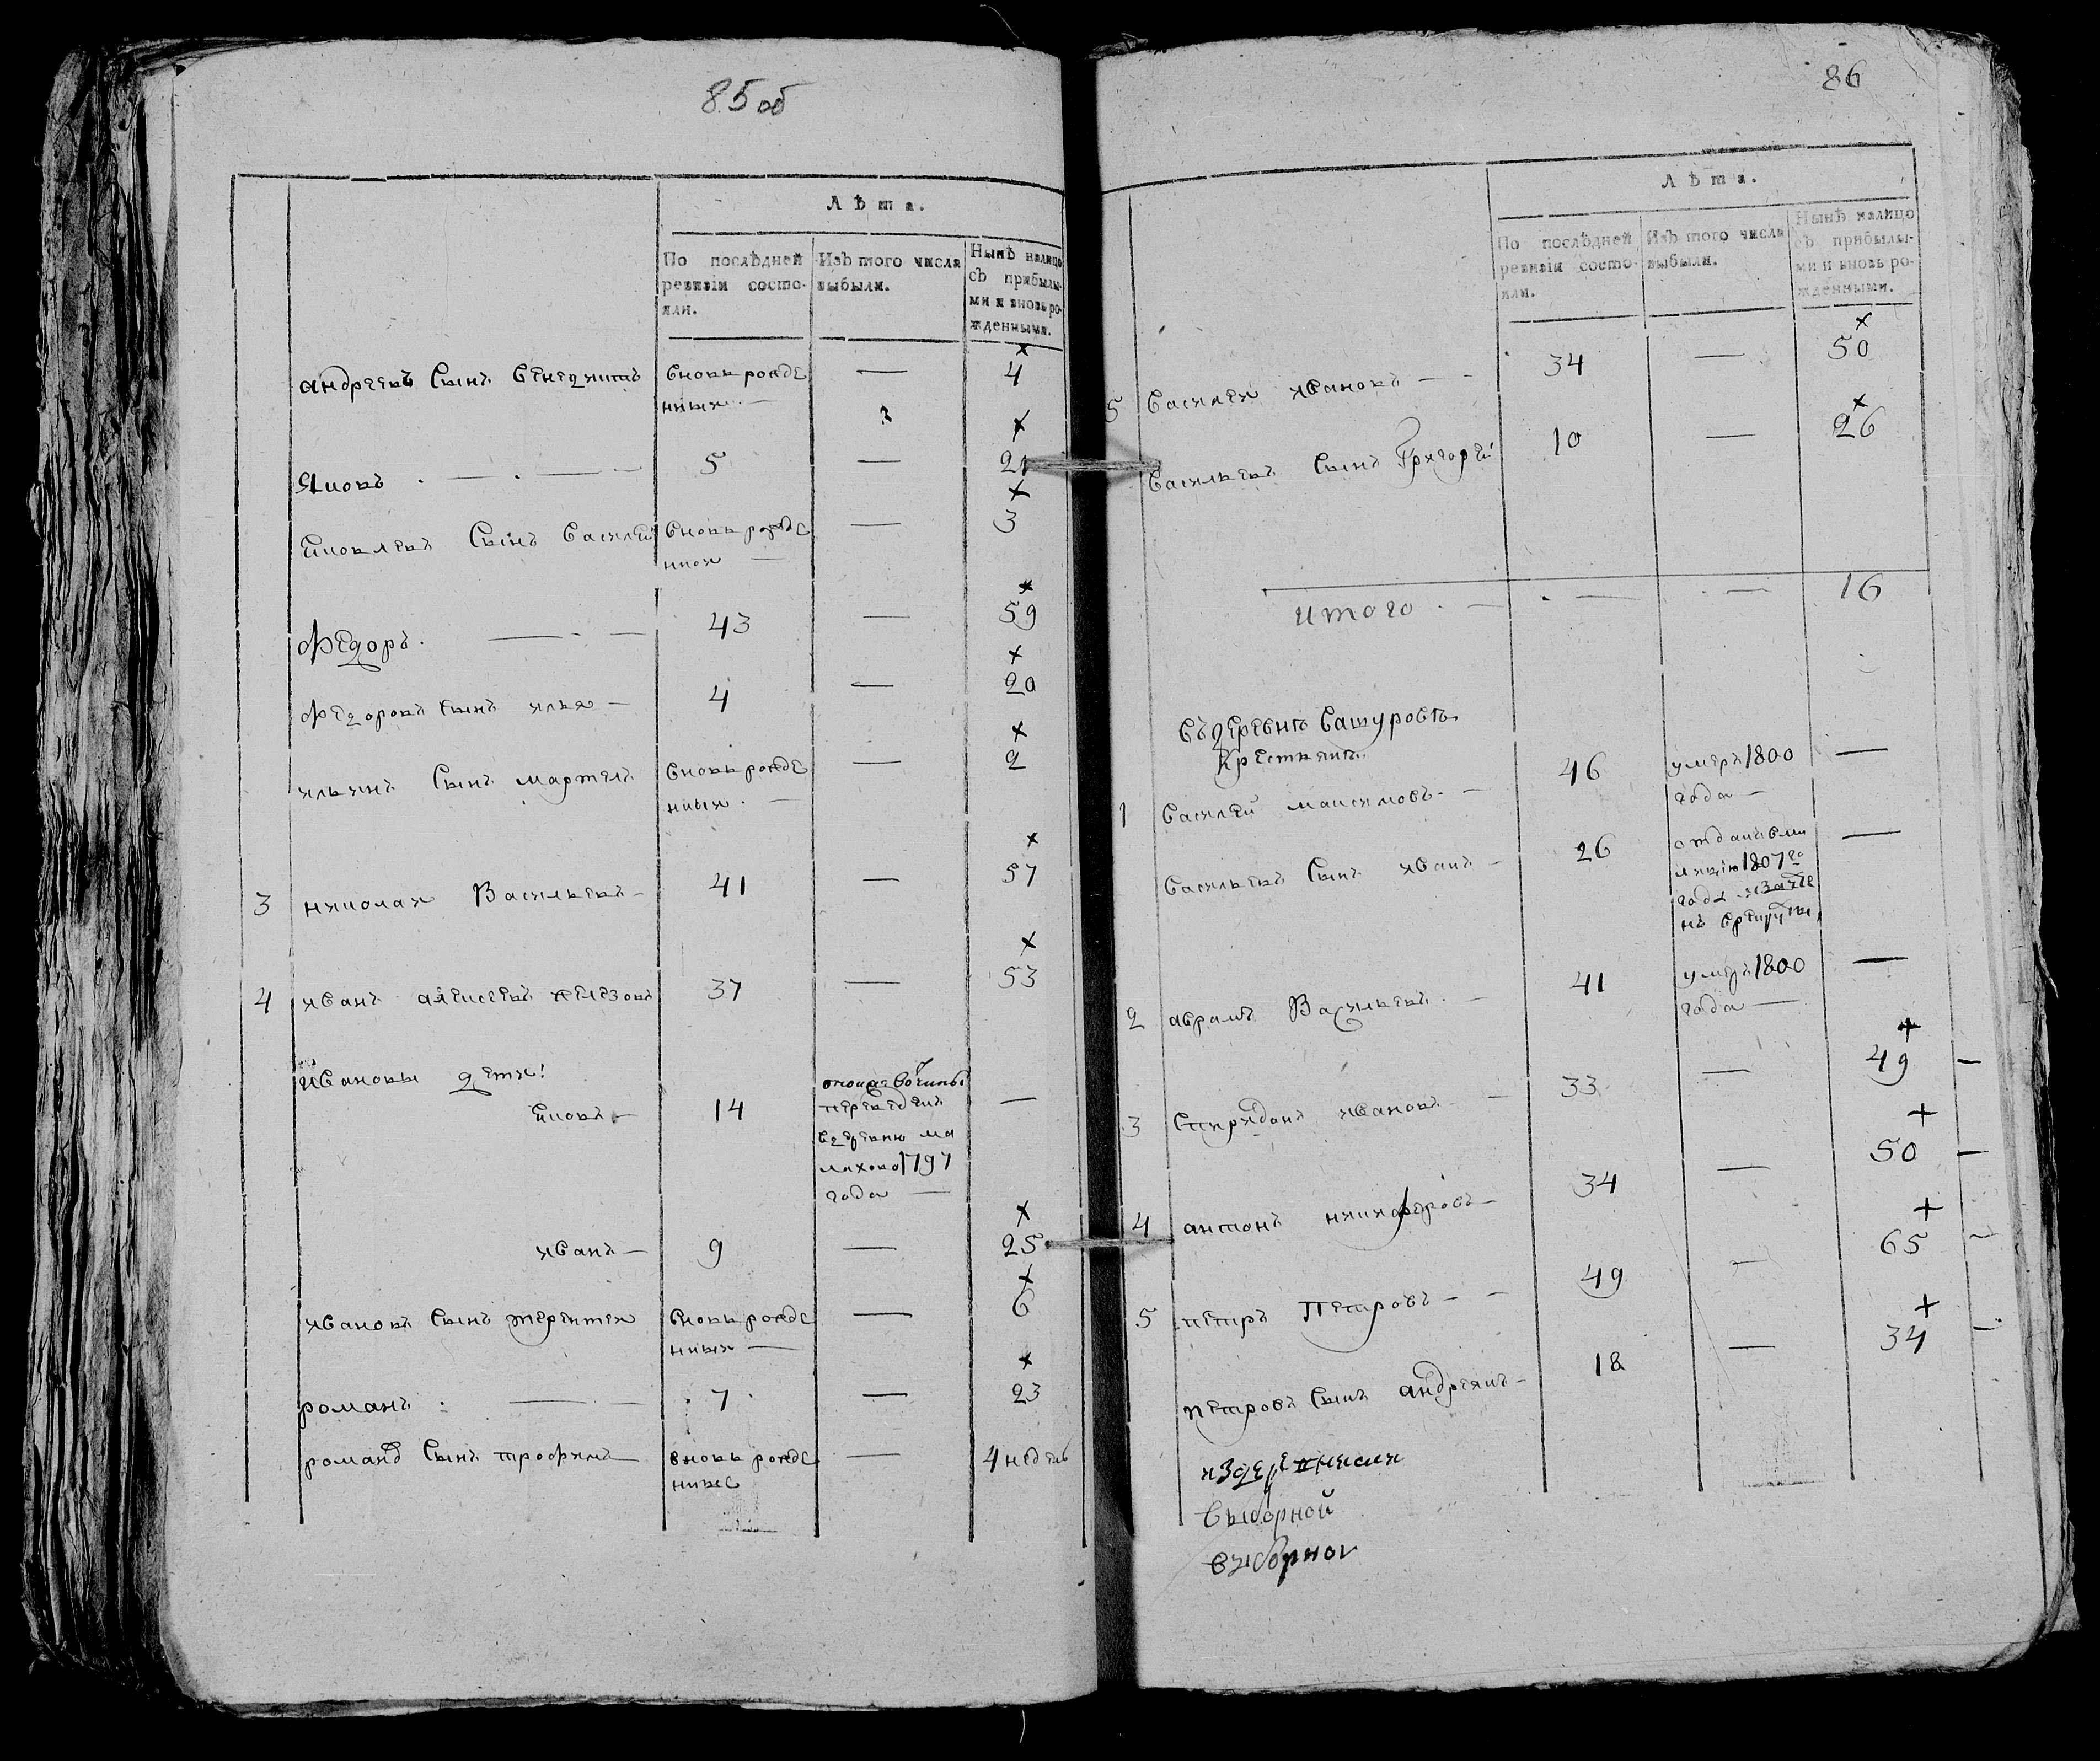 85 об
Лѣта.
По послѣдней ревизіи состояли.
Изъ того числа выбыли.
Нынѣ налицо съ прибылыми и вновь рожденными.
андреевъ сынъ венедиктъ вновь рожде — 4
нныи —
Яковъ — 5 — 21
Яковлевъ сынъ василеи вновь рожде — 3
нной —
Федоръ — 43 — 59
Федоровъ сынъ илья — 4 — 20
ильинъ сынъ вновь рожде — 2
нныи —
3 николаи Васильевъ — 41 — 57
4 иванъ алексеевъ 37 — 53
Ивановы дети:
Яковъ — 14 —
переведенъ
в деревню ма
лахово 1797
года —
иванъ — 9 — 25
ивановъ сынъ терентеи вновь рожде — 6
нныи —
романъ — 7 — 23
романов сынъ трофимъ вновь рожде — 4 недель
нные
86
Лѣта.
По послѣдней ревизіи состояли.
Изъ того числа выбыли.
Нынѣ налицо съ прибылыми и вновь рожденными.
5 василеи ивановъ — 34 — 50
васильевъ сынъ Григореи 10 — 26
итого — — 16
въ деревне вашурове
Крестьянъ
1 василей максимовъ — 46 умеръ 1800 —
года —
васильевъ сынъ иванъ — 26 отданъ в ми —
лицию 1807 го
года и зачте
нъ в рекруты
2 аврамъ Васильевъ — 41 умеръ 1800 —
года —
3 спиридонъ ивановъ — 33 — 49 —
4 антонъ никифоровъ — 34 — 50 —
5 петръ Петровъ — 49 — 65 —
петровъ сынъ андреянъ — 18 — 34 —
выборной
выборнои